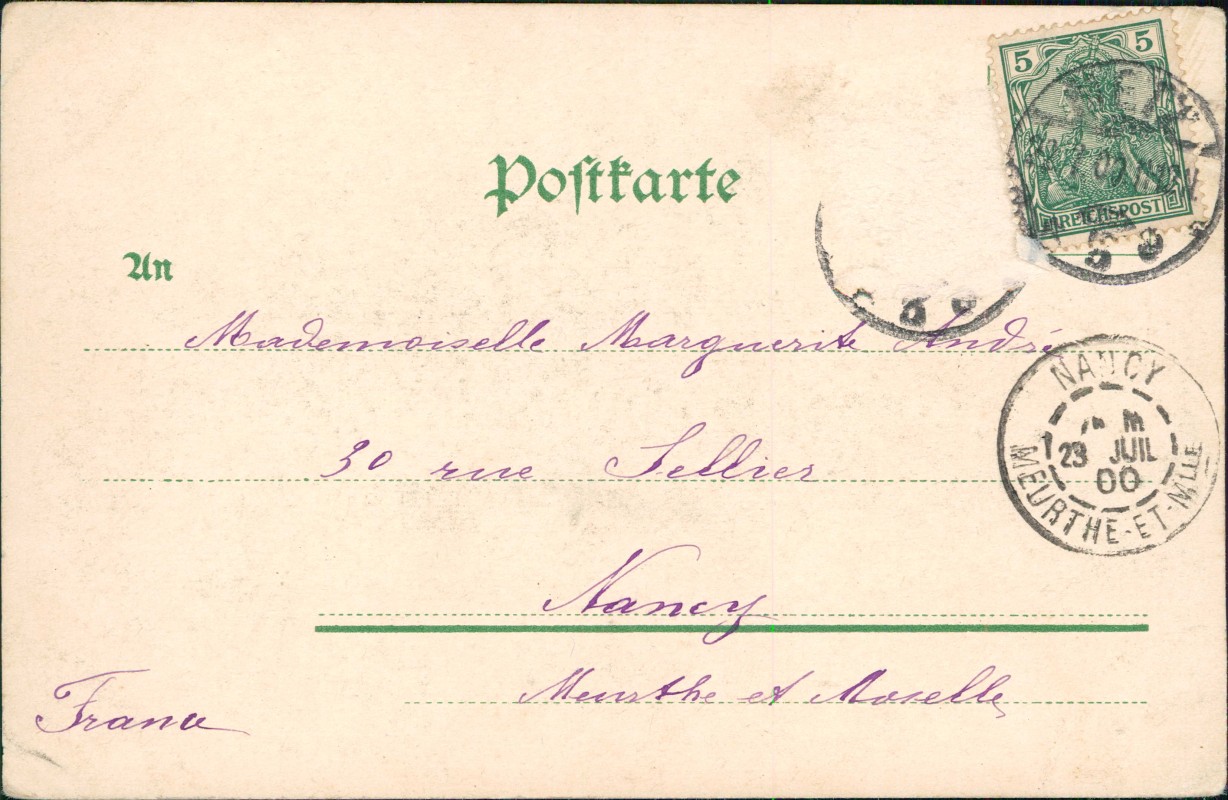 5 5
REICHSPOST
Postkarte
An
Mademoiselle Marguerite André
NANCY
23 JUIL
00
MEURTHE-ET-MLLE
30 rue Sellier
Nancy
Meurthe et Moselle
France